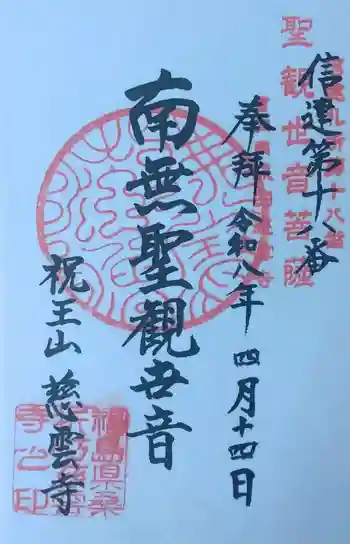 信達第十八番
聖観世音菩薩
奉拝 令和八年 四月十四日
南無聖観世音
祝王山 慈雲寺